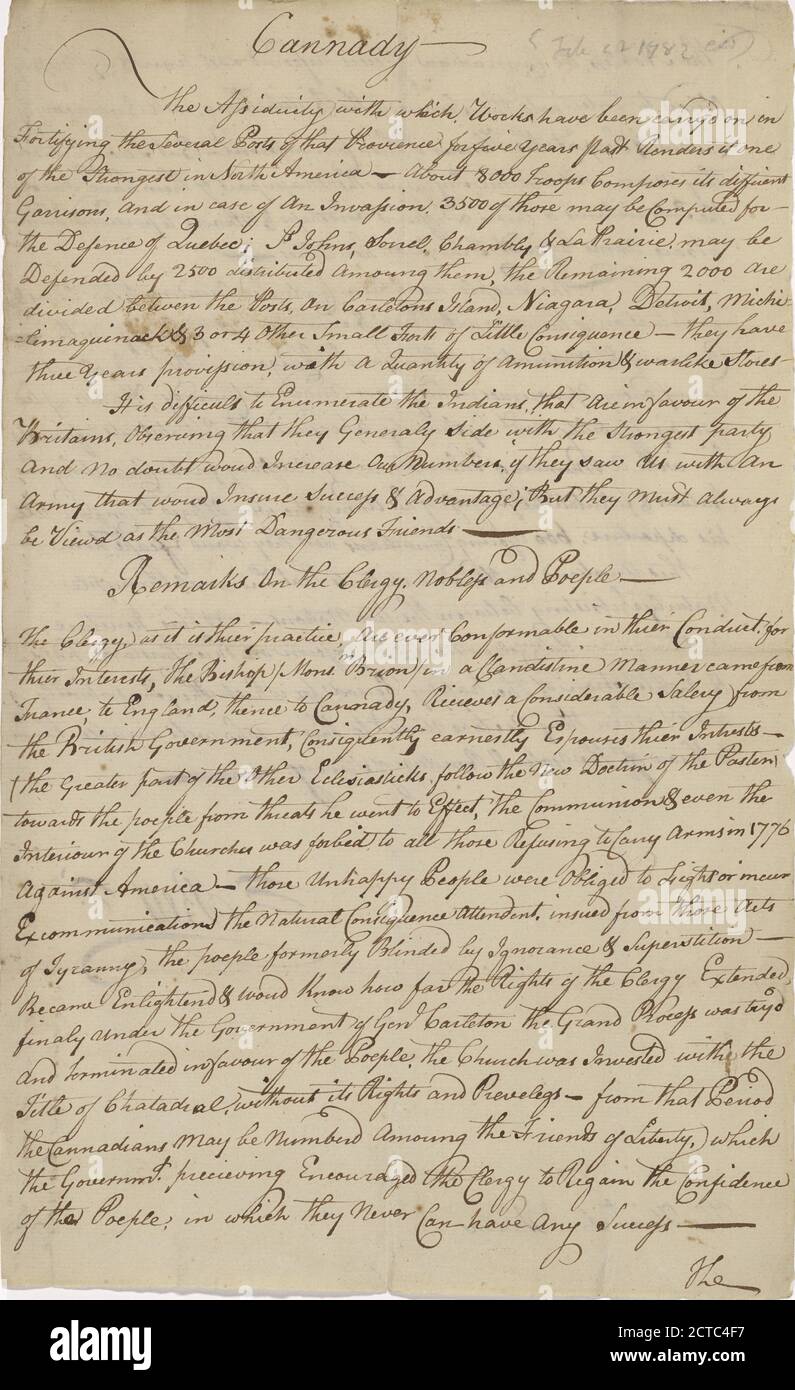 Cannady
The Assiduity with which Works have been carry'd on in
Fortifying the Several Posts of that Provience for five Years past Renders it one
of the Strongest in North America - About 8000 Troops Composes its diffirent
Garrisons, and in case of An Invassion, 3500 of those may be Computed for
the Defence of Quebec; St Johns, Sorrel, Chambly & La Prairie, may be
Defended by 2500 distributed Amoung them, the Remaining 2000 are
divided betwen the Posts, On Carletons Island, Niagara, Detroit, Michi-
-limaquinack & 3 or 4 Other Small Forts of Little Consiquence - they have
three Years provission, with a Quantity of Amunition & warlike Stores -
It is difficult to Enumerate the Indians, that are in favour of the
Britains, Observing that they Generaly Side with the Strongest party
And no doubt woud Increase Our Numbers, if they saw us with An
Army that woud Insure Success & Advantage; But they Must always
be View'd as the Most Dangerous Friends
Remarks On the Clergy, Nobless and Poeple
The Clergy, as it is thier practice, Are ever Conformable in thier Conduct, for
thier Interests, The Bishop (Monsr Brion) in a Clandistine Manner came from
France, to England, thence to Cannady, Recieves a Considerable Salery from
the British Government, Consiquently earnestly Espouses thier Intrests -
(the Greater part of the Other Eclesiasticks, follow the New Doctrin of the Paster)
towards the poeple from threats he went to Effect, The Communion & even the
Interiour of the Churches was forbid to all those Refusing to Carry Arms in 1776
Against America - those Unhappy People were Obliged to Fight or incur
Excommunication) the Natural Consiquence Attendent, insued from those Acts
of Tyranny, the poeple formerly Blinded by Ignorance & Superstition -
Became Enlightend & woud Know how far the Rights of the Clergy Extended,
finaly under the Government of Genl Carleton the Grand Process was try'd
And terminated in favour of the Poeple, the Church was Invested with the
Title of Chatadral, without its Rights and Prevelegs - from that Period
the Cannadians May be Numberd Amoung the Friends of Liberty, which
the Governmt precieving Encouraged the Clergy to Regain the Confidence
of the Poeple, in which they Never Can have Any Success
The
alamy
Image ID: 2CTC4F7
www.alamy.com